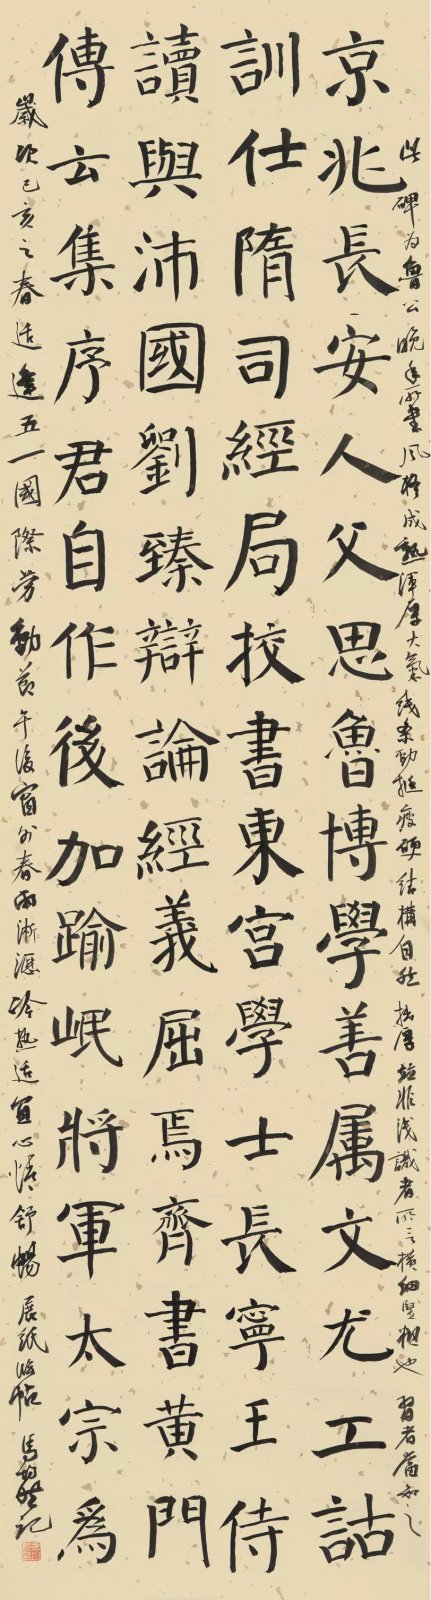 此碑为鲁公晚年所書风格成熟渾厚大氣线条勁挺瘦硬结構自然拙厚並非浅識者所言横细竖粗也習者當知之
京兆長安人父思魯博學善属文尤工詁
訓仕隋司經局挍書東宫學士長寧王侍
讀與沛國劉臻辯論經義屈焉齊書黄門
傳云集序君自作後加踰岷將軍太宗爲
歲次己亥之春适逢五一國際勞動节午後窗外春雨淅瀝冷热适宜心情舒暢展紙临帖记